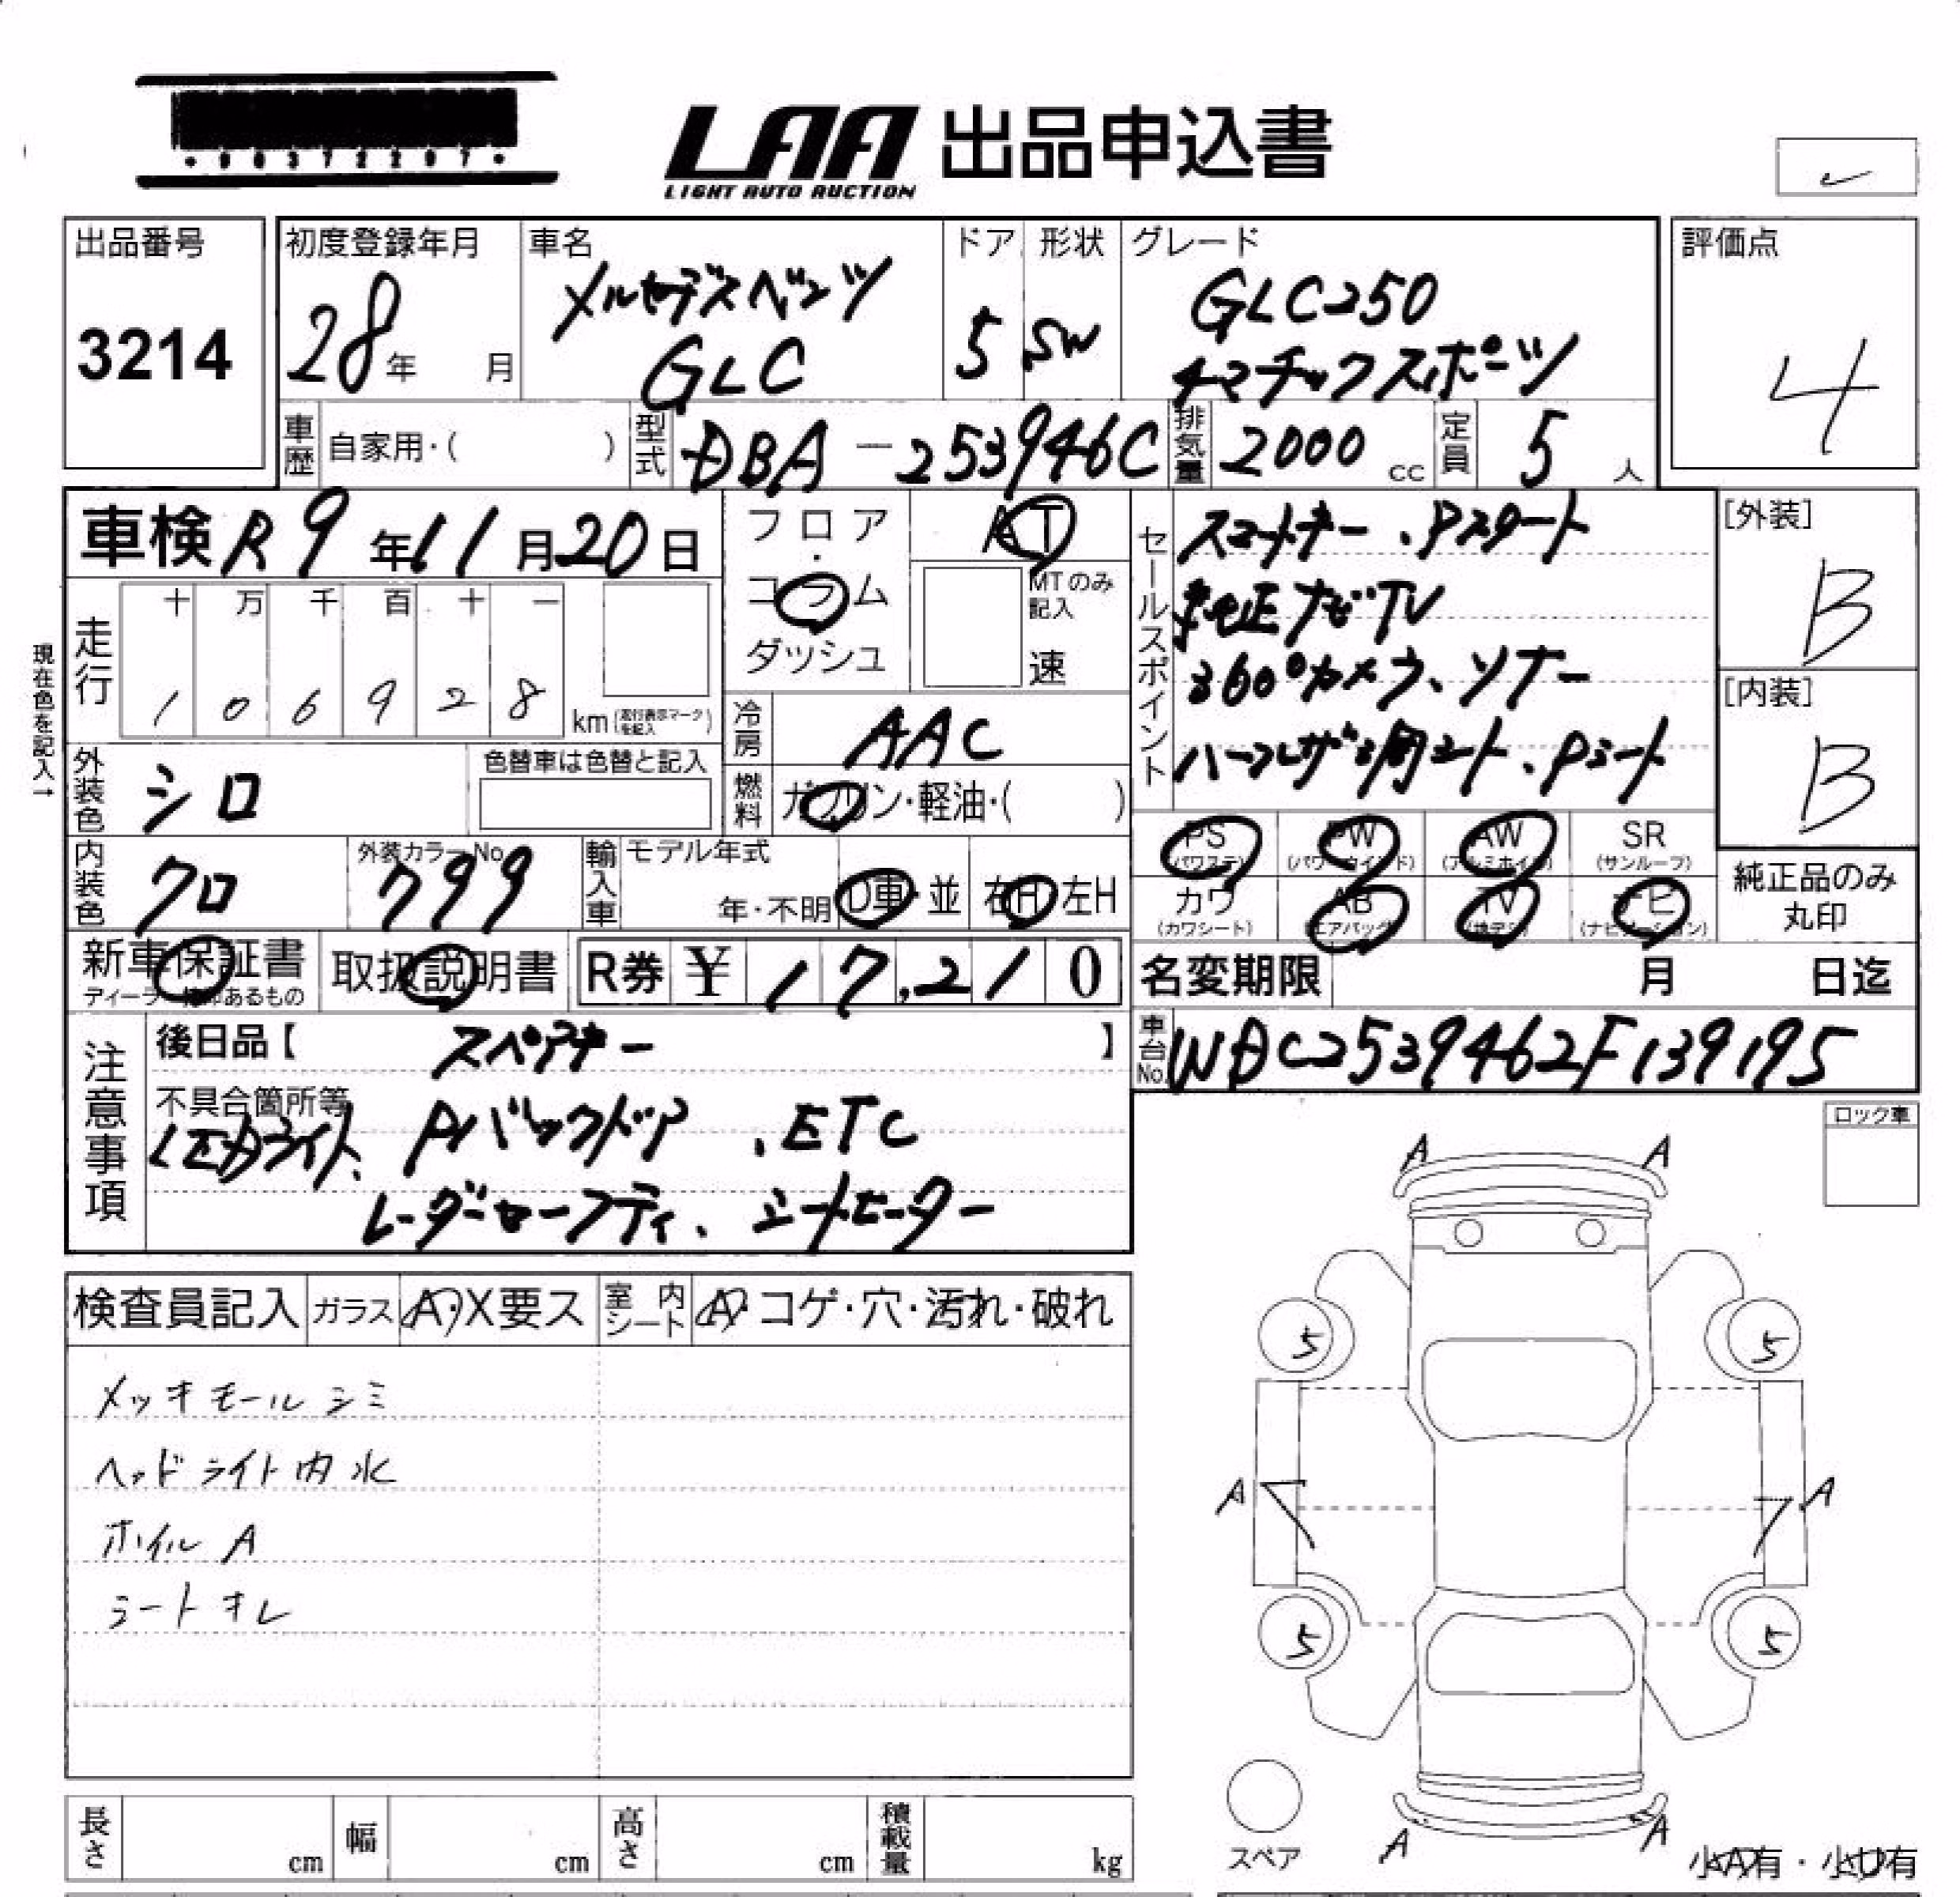 ・00372207・
LAA 出品申込書
LIGHT AUTO AUCTION
出品番号
3214
初度登録年月
28年 月
車名
メルセデスベンツ
GLC
ドア
5
形状
SW
グレード
GLC250
4マチックスポーツ
評価点
4
車歴 自家用・( )
型式 DBA-253946C
排気量 2000 cc
定員 5 人
車検 R9年11月20日
フロア・コラム
ダッシュ
AT
MTのみ記入
速
セールスポイント
スマートキー、Pスタート
純正ナビTV
360°カメラ、ソナー
ハーフレザー調シート、Pシート
[外装]
B
[内装]
B
現在色を記入→
走行
十 万 千 百 十 一
1 0 6 9 2 8 km (走行表示マークを記入)
冷房 AAC
燃料 ガソリン・軽油・( )
外装色 シロ
色替車は色替と記入
内装色 クロ
外装カラーNo.
799
輸入車
モデル年式
年・不明
D車・並
右H 左H
PS (パワステ)
PW (パワーウインド)
AW (アルミホイル)
SR (サンルーフ)
カワ (カワシート)
AB (エアバック)
TV (地デジ)
ナビ (ナビゲーション)
純正品のみ丸印
新車保証書
ディーラー捺印あるもの
取扱説明書
R券 ¥ 17,210
名変期限 月 日迄
車台No. WDC2539462F139195
注意事項
後日品【 スペアキー 】
不具合箇所等
LEDライト、Pバックドア、ETC
レーダーセーフティ、シートヒーター
ロック車
検査員記入
ガラス A・X要ス
室内シート A・コゲ・穴・汚れ・破れ
メッキモールシミ
ヘッドライト内水
ホイルA
シートキレ
A A
5 5
A A
5 5
A A
スペア
小A有・小U有
長さ cm
幅 cm
高さ cm
積載量 kg